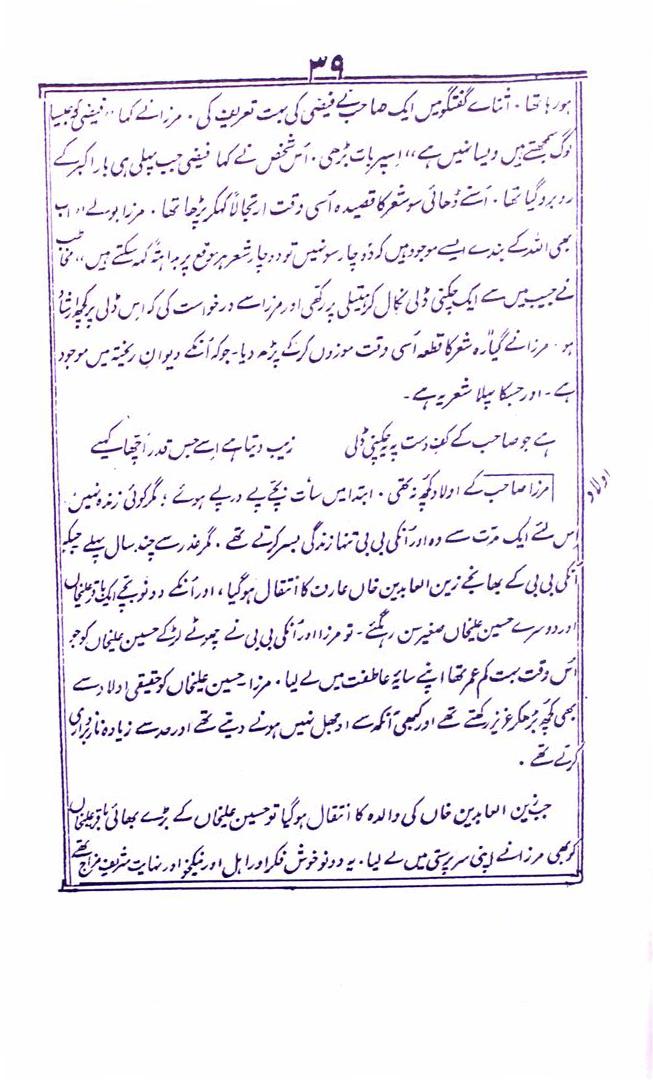 ۳۹
ہو رہا تھا ۔ اثنائے گفتگو میں ایک صاحب نے فیضی کی بہت تعریف کی ۔ مرزا نے کہا "فیضی کو جیسا
لوگ سمجھتے ہیں ویسا نہیں ہے" اسپر بات بڑھی ۔ اُس شخص نے کہا فیضی جب پہلی ہی بار اکبر کے
روبرو گیا تھا ۔ اُسنے ڈھائی سو شعر کا قصیدہ اُسی وقت ارتجالاً کہکر پڑھا تھا ۔ مرزا بولے "اب
بھی اللہ کے بندے ایسے موجود ہیں کہ دو چار سو نہیں تو دو چار شعر ہر موقع پر بداہتہً کہہ سکتے ہیں" مخاطب
نے جیب میں سے ایک چکنی ڈلی نکال کر ہتیلی پر رکھی اور مرزا سے درخواست کی کہ اس ڈلی پر کچھ ارشاد
ہو ۔ مرزا نے گیارہ شعر کا قطعہ اُسی وقت موزوں کر کے پڑھ دیا ۔ جو کہ اُنکے دیوان ریختہ میں موجود
ہے ۔ اور جسکا پہلا شعر یہ ہے ۔
ہے جو صاحب کے کف دست پہ یہ چکنی ڈلی زیب دیتا ہے اسے جس قدر اچھا کہیے
اولاد
مرزا صاحب کے اولاد کچھ نہ تھی ۔ ابتدا میں سات بچے پے درپے ہوئے ؛ مگر کوئی زندہ نہیں
اس لئے ایک مدت سے وہ اور اُنکی بی بی تنہا زندگی بسر کرتے تھے ۔ مگر غدر سے چند سال پہلے جبکہ
اُنکی بی بی کے بھانجے زین العابدین خاں عارف کا انتقال ہوگیا ، اور اُنکے دونو بچے ایک باقر علیخاں
اور دوسرے حسین علیخاں صغیر سن رہگئے ۔ تو مرزا اور اُنکی بی بی نے چھوٹے لڑکے حسین علیخاں کو جو
اُس وقت بہت کم عمر تھا اپنے سایۂ عاطفت میں لے لیا ۔ مرزا حسین علیخاں کو حقیقی اولاد سے
بھی کچھ بڑھکر عزیز رکھتے تھے اور کبھی آنکھ سے اوجھل نہیں ہونے دیتے تھے اور حد سے زیادہ ناز برداری
کرتے تھے ۔
جب زین العابدین خاں کی والدہ کا انتقال ہوگیا تو حسین علیخاں کے بڑے بھائی باقر علیخاں
کو بھی مرزا نے اپنی سرپرستی میں لے لیا ۔ یہ دونو خوش فکر اور اہل اور نیکخو اور نہایت شریف مزاج تھے